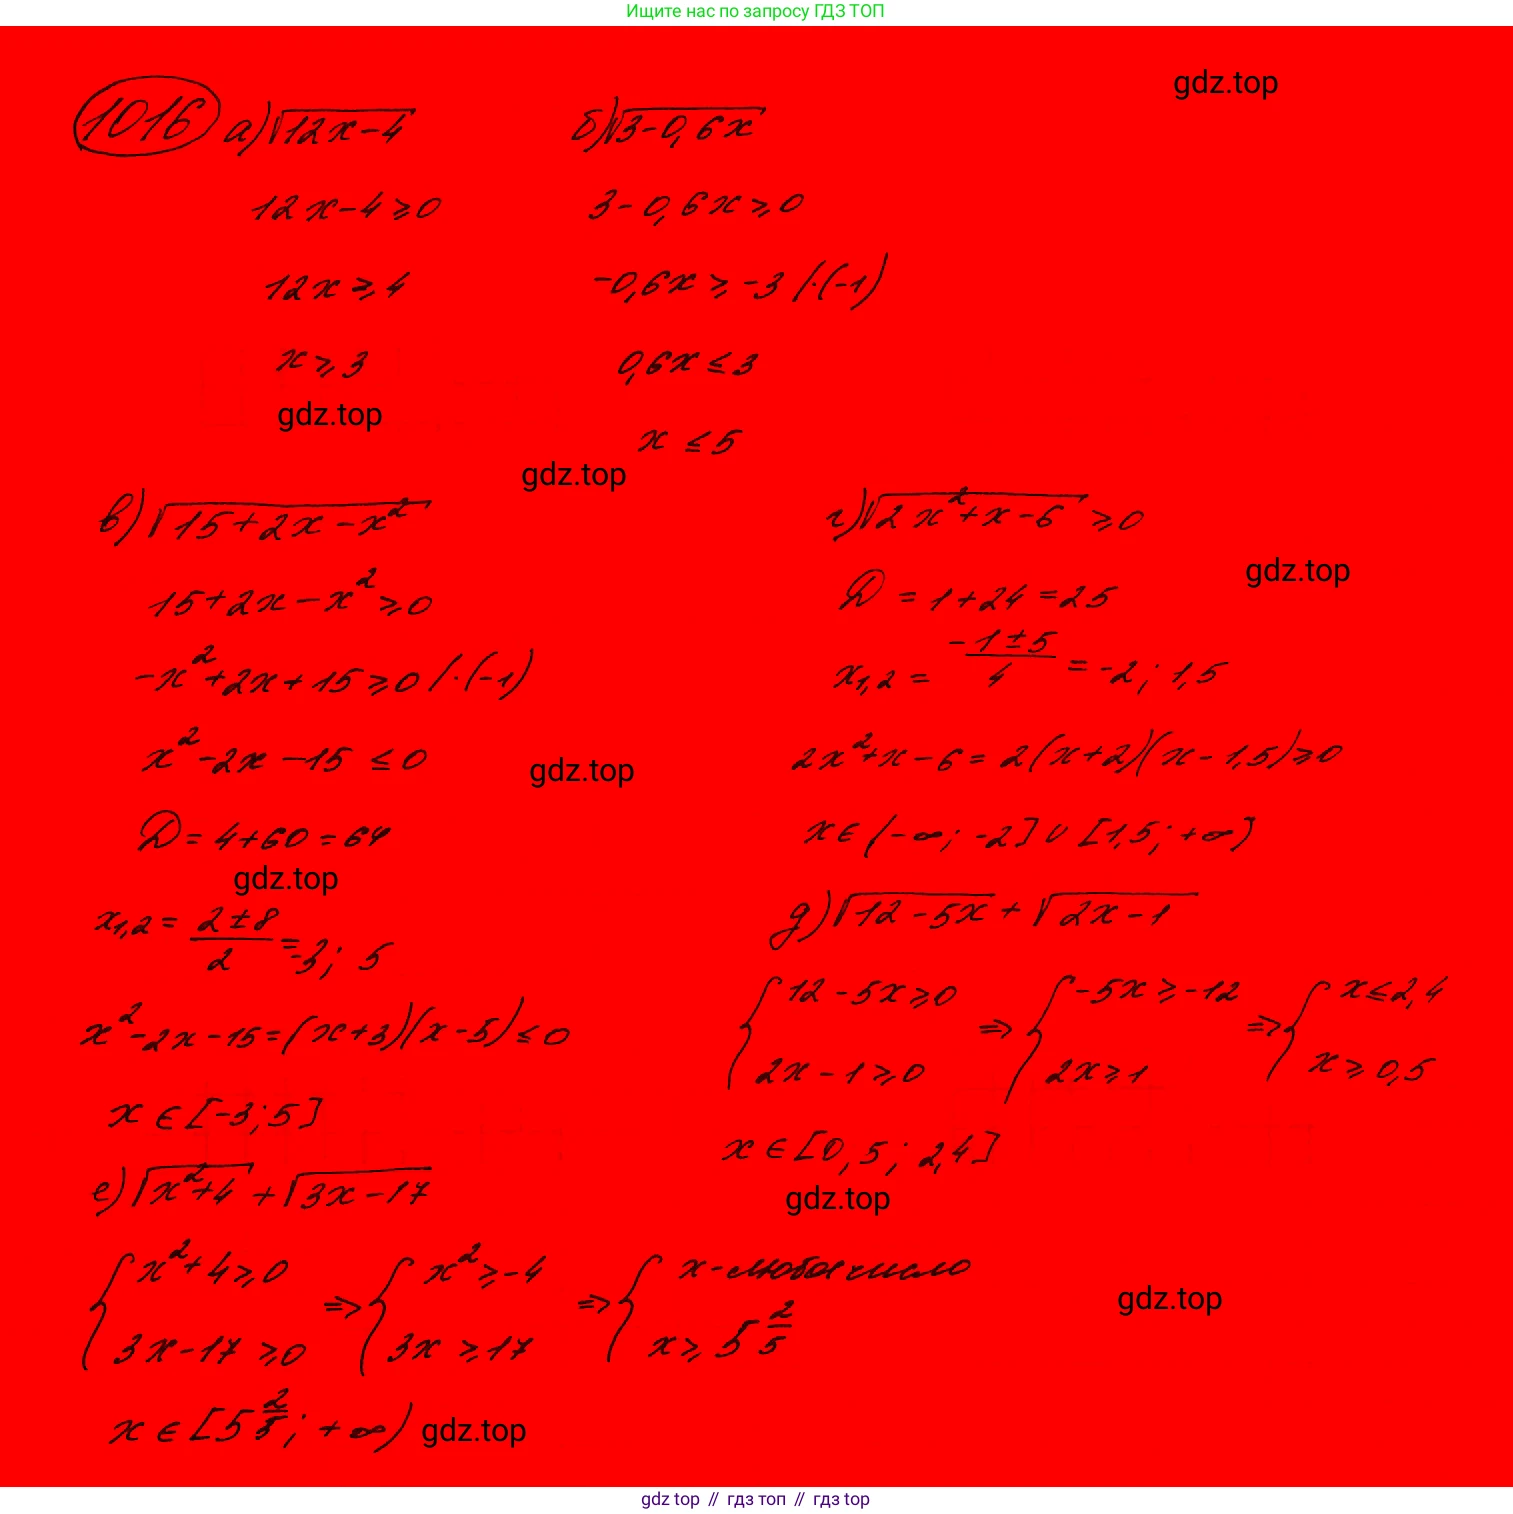 Ищите нас по запросу ГДЗ ТОП
gdz.top
1016 а) √12x-4
12x-4≥0
12x≥4
x≥3
gdz.top
б) √3-0,6x
3-0,6x≥0
-0,6x≥-3 /·(-1)
0,6x≤3
x≤5
gdz.top
в) √15+2x-x²
15+2x-x²≥0
-x²+2x+15≥0 /·(-1)
x²-2x-15≤0
gdz.top
D=4+60=64
gdz.top
x1,2 = 2±8/2 = -3; 5
x²-2x-15=(x+3)(x-5)≤0
x∈[-3;5]
г) √2x²+x-6 ≥0
gdz.top
D=1+24=25
x1,2 = -1±5/4 = -2; 1,5
2x²+x-6=2(x+2)(x-1,5)≥0
x∈(-∞; -2]∪[1,5; +∞)
д) √12-5x + √2x-1
{12-5x≥0 => {-5x≥-12 => {x≤2,4
2x-1≥0 2x≥1 x≥0,5
x∈[0,5; 2,4]
gdz.top
е) √x²+4 + √3x-17
{x²+4≥0 => {x²≥-4 => {x-любое число
3x-17≥0 3x≥17 x≥5 2/5
gdz.top
x∈[5 2/3; +∞) gdz.top
gdz top // гдз топ // гдз top